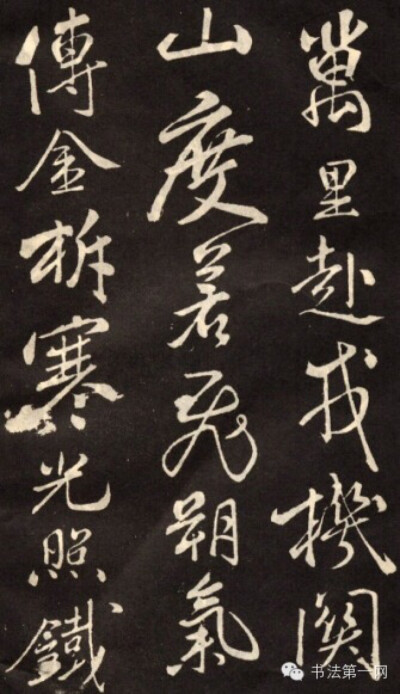 萬里赴戎機關
山度若飛朔氣
傳金柝寒光照鐵
书法第一网